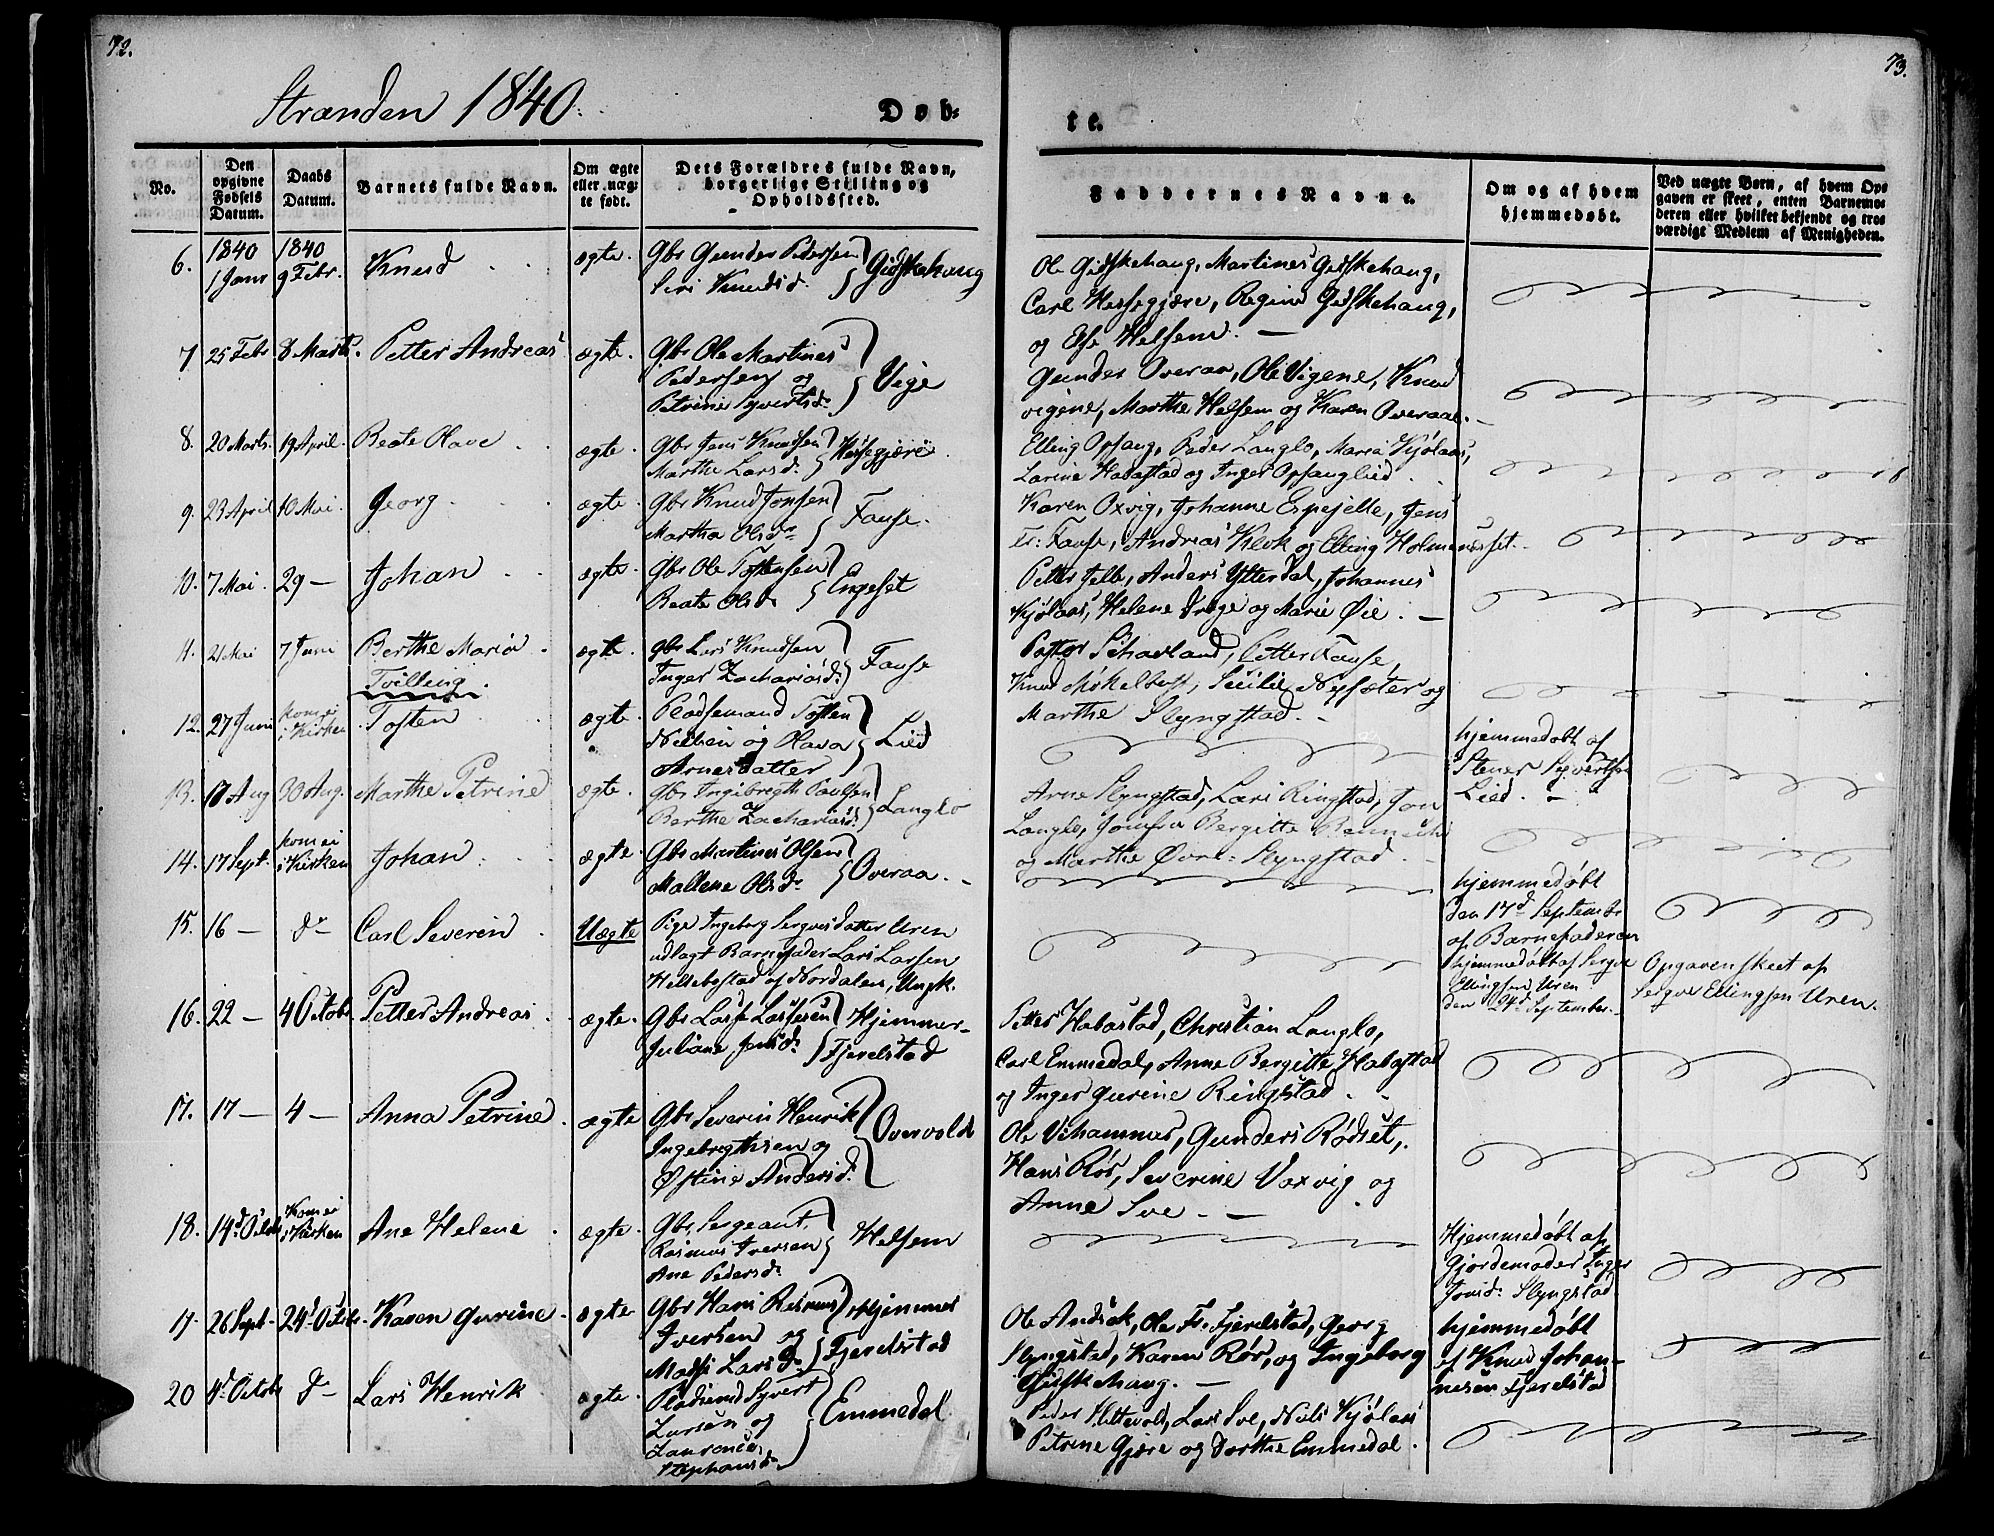 72.
73.
Stranden 1840.
Døb-
te.
No.
Den opgivne Fødsels Datum.
Daabs Datum.
Barnets fulde Navn.
Om ægte eller uægte født.
Dets Forældres fulde Navn, borgerlige Stilling og Opholdssted.
Faddernes Navne.
Om og af hvem hjemmedøbt.
Ved uægte Børn, af hvem Opgaven er skeet, enten Barnemoderen eller hvilket bekjendt og troværdigt Medlem af Menigheden.
6. 1840 1 Janr 1840 9 Febr. Knud ægte. Gbr Gunder Petersen
Siri Knudsd. } Gidskehaug
Ole Gidskehaug, Martinus Gidskehaug,
Carl Hessegjære, Regine Gidskehaug,
og Else Helsem.
7 25 Febr 8 Marts. Petter Andreas ægte. Gbr Ole Martines
Pedersen og
Petrine Syvertsd. } Vige
Gunder Overaa, Ole Vigene, Knud
Vigene, Marthe Helsem og Karen Overaae.
8. 20 Marts. 19 April. Beate Olave ægte. Gbr Jens Knudsen
Marthe Larsd. } Hessegjære
Elling Opsaug, Peder Langlo, Maria Kjølaas,
Larine Habostad og Inger Opsauglied.
9. 23 April 10 Mai. Georg. ægte. Gbr Knud Jonsen
Martha Olsdr } Fause.
Karen Oxvig, Johanne Espejelle, Jens
Fr: Fause, Andreas Klok og Elling Holmeneset.
10. 7 Mai. 29 — Johan ægte. Gbr Ole Tostensen
Beate Olsd. } Engeset
Petter Jelle, Anders Ytterdal, Johannes
Kjølaas, Helene Drege og Marie Øie.
11. 21 Mai 7 Juni Berthe Maria
Tvilling. ægte. gbr Lars Knudsen
Inger Zachariasd. } Fause
Pastor Schavland, Petter Fause,
Knud Møkelbost, Sicilie Nysæter og
Marthe Slyngstad.
12. 27 Juni kom ei i Kirken Tosten ægte. Pladsemand Tosten
Nielsen og Olava
Arnesdatter } Lied
hjemmedøbt af
Stener Syvertsen
Lied.
13. 17 Aug 30 Aug. Marthe Petrine ægte. Gbr Ingebregth Paulsen
og
Berthe Zachariasd. } Langlo
Arne Slyngstad, Lars Ringstad, Jon
Langlo, Jomfru Bergitte
og Marthe Øvre-Slyngstad.
14. 17 Sept. kom ei i Kirken Johan. ægte. Gbr Martines Olsen
Mallene Olsdr } Overaa.
hjemmedøbt
den 17d Septembr
af Barnefaderen
15. 16 — do Carl Severin Uægte Pige Ingeborg Sergvesdatter Uren
udlagt Barnefader Lars Larsen
Hellebostad af Nordalen, Ungk.
hjemmedøbt af Sergve
Ellingsen Uren
den 24d September.
Opgaven skeet af
Sergve Ellingsen Uren.
16. 22 — 4 Octobr. Petter Andreas. ægte. Gbr Lasse Lassesen
Juliane Jensdr } Hjemmer-
Fjørelstad
Petter Habostad, Christian Langlo,
Carl Emmedal, Anne Bergitte Habostad
og Inger Gurine Ringstad.
17. 17 — 4 — Anna Petrine ægte Gbr Severin Henrik
Ingebregthsen og
Østine Andersd. } Overvold
Ole Vihammer, Gunders Rødset,
Hans Rør, Severine Voxvig og
Anne Sve
18. 14d Octobr Kom ei i Kirken Ane Helene ægte. Gbr Sergeant
Rasmus Iversen
Ane Pedersdr } Helsem
Hjemmedøbt af
Gjordemoder Inger
Jonsd. Slyngstad
19. 26 Sept. 24d Octbr. Karen Gurine ægte Gbr Hans Rasmus
Iversen og
Madsi Larsdr } Hjemmer
Fjerelstad
Ole Andsok, Ole Fr. Fjerelstad, Georg
Slyngstad, Karen Rør, og Ingeborg
Gidskehaug.
hjemmedøbt
af Knud Johan-
nesen Fjerelstad
20 4d Octobr do Lars Henrik ægte. Pladsmd Syvert
Larsen og
Laurense
Stephansdr } Emmedal
Peder Hettevold, Lars Sve, Niels Kjølaas
Petrine Gjære og Dorthe Emmedal.